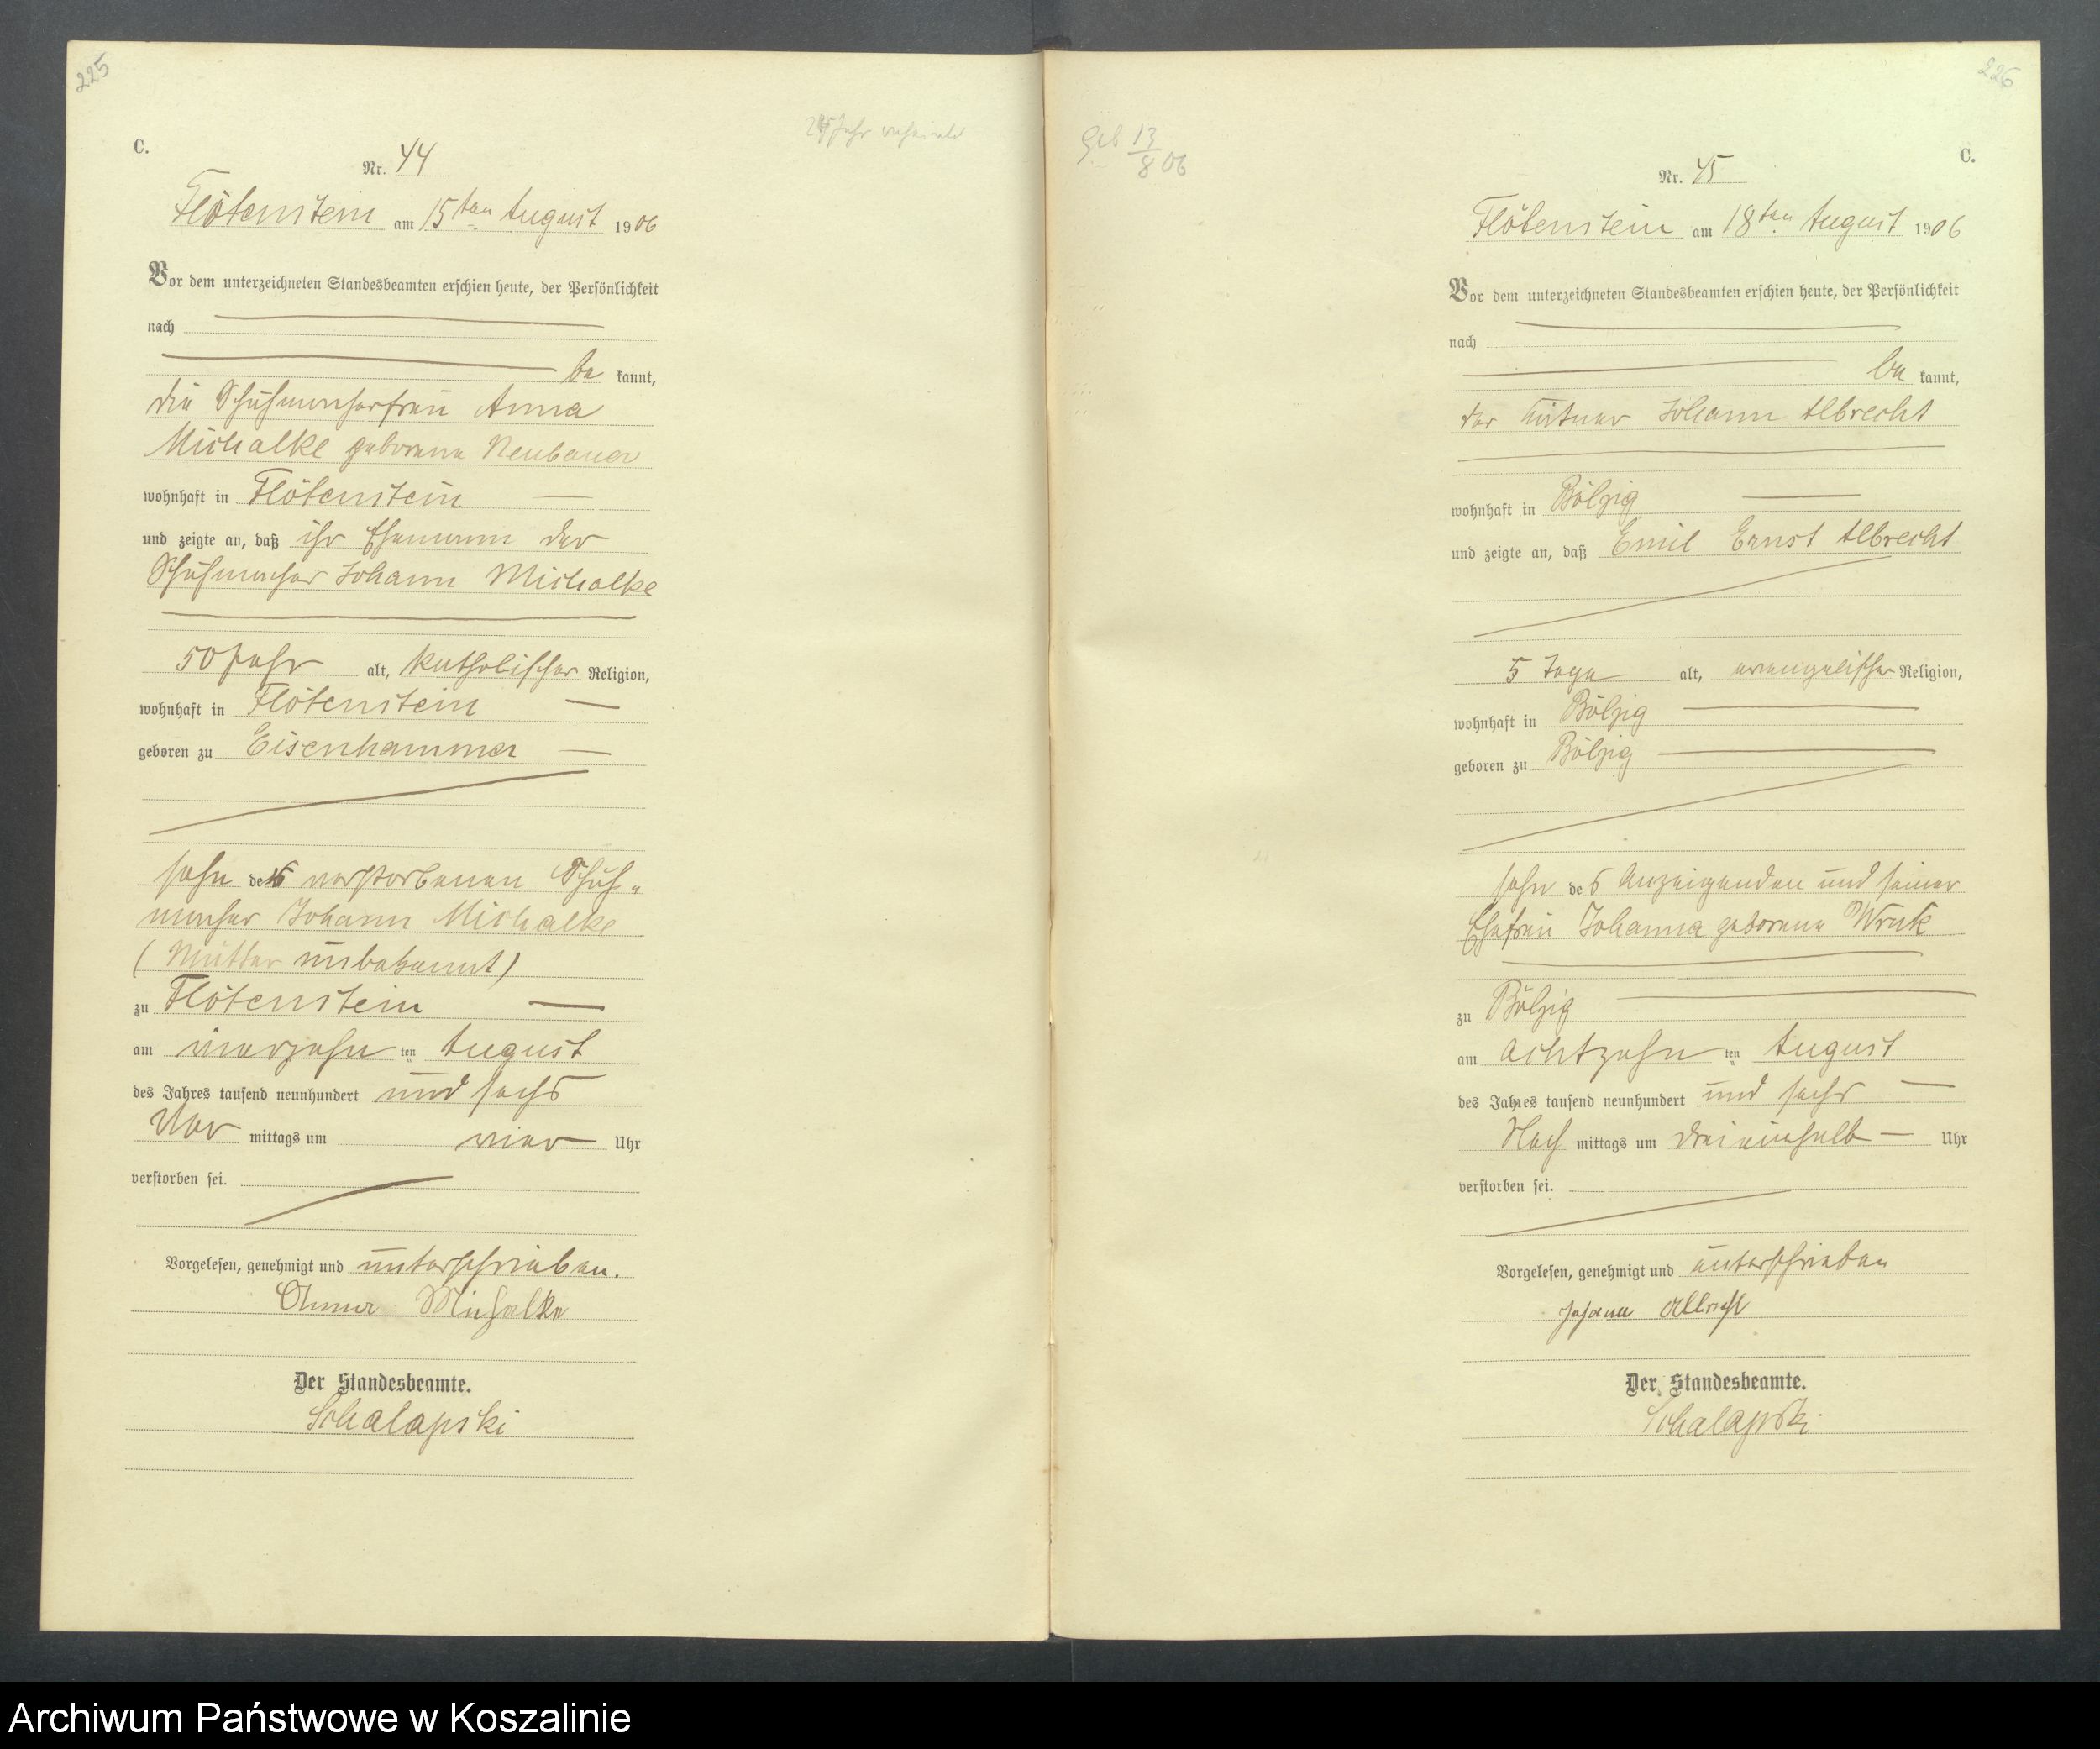 225
C.
Nr. 44
Flötenstein am 15ten August 1906
Vor dem unterzeichneten Standesbeamten erschien heute, der Persönlichkeit
nach
be kannt,
die Schuhmacherfrau Anna
Michalke geborene Neubauer
wohnhaft in Flötenstein
und zeigte an, daß ihr Ehemann der
Schuhmacher Johann Michalke
50 Jahr alt, katholischer Religion,
wohnhaft in Flötenstein
geboren zu Eisenhammer
Sohn des verstorbenen Schuh-
macher Johann Michalke
(Mutter unbekannt)
zu Flötenstein
am vierzehn ten August
des Jahres tausend neunhundert und sechs
Vor mittags um vier Uhr
verstorben sei.
Vorgelesen, genehmigt und unterschrieben.
Anna Michalke
Der Standesbeamte.
Schalapski
Jahr
226
geb 13/8 06
C.
Nr. 45
Flötenstein am 18ten August 1906
Vor dem unterzeichneten Standesbeamten erschien heute, der Persönlichkeit
nach
be kannt,
der Johann Albrecht
wohnhaft in Bölzig
und zeigte an, daß Emil Ernst Albrecht
5 Tage alt, evangelischer Religion,
wohnhaft in Bölzig
geboren zu Bölzig
Sohn des Anzeigenden und seiner
Ehefrau Johanna geborene Wruk
zu Bölzig
am achtzehn ten August
des Jahres tausend neunhundert und sechs
Nach mittags um dreieinhalb Uhr
verstorben sei.
Vorgelesen, genehmigt und unterschrieben
Johann Albrecht
Der Standesbeamte.
Schalapski
Archiwum Państwowe w Koszalinie